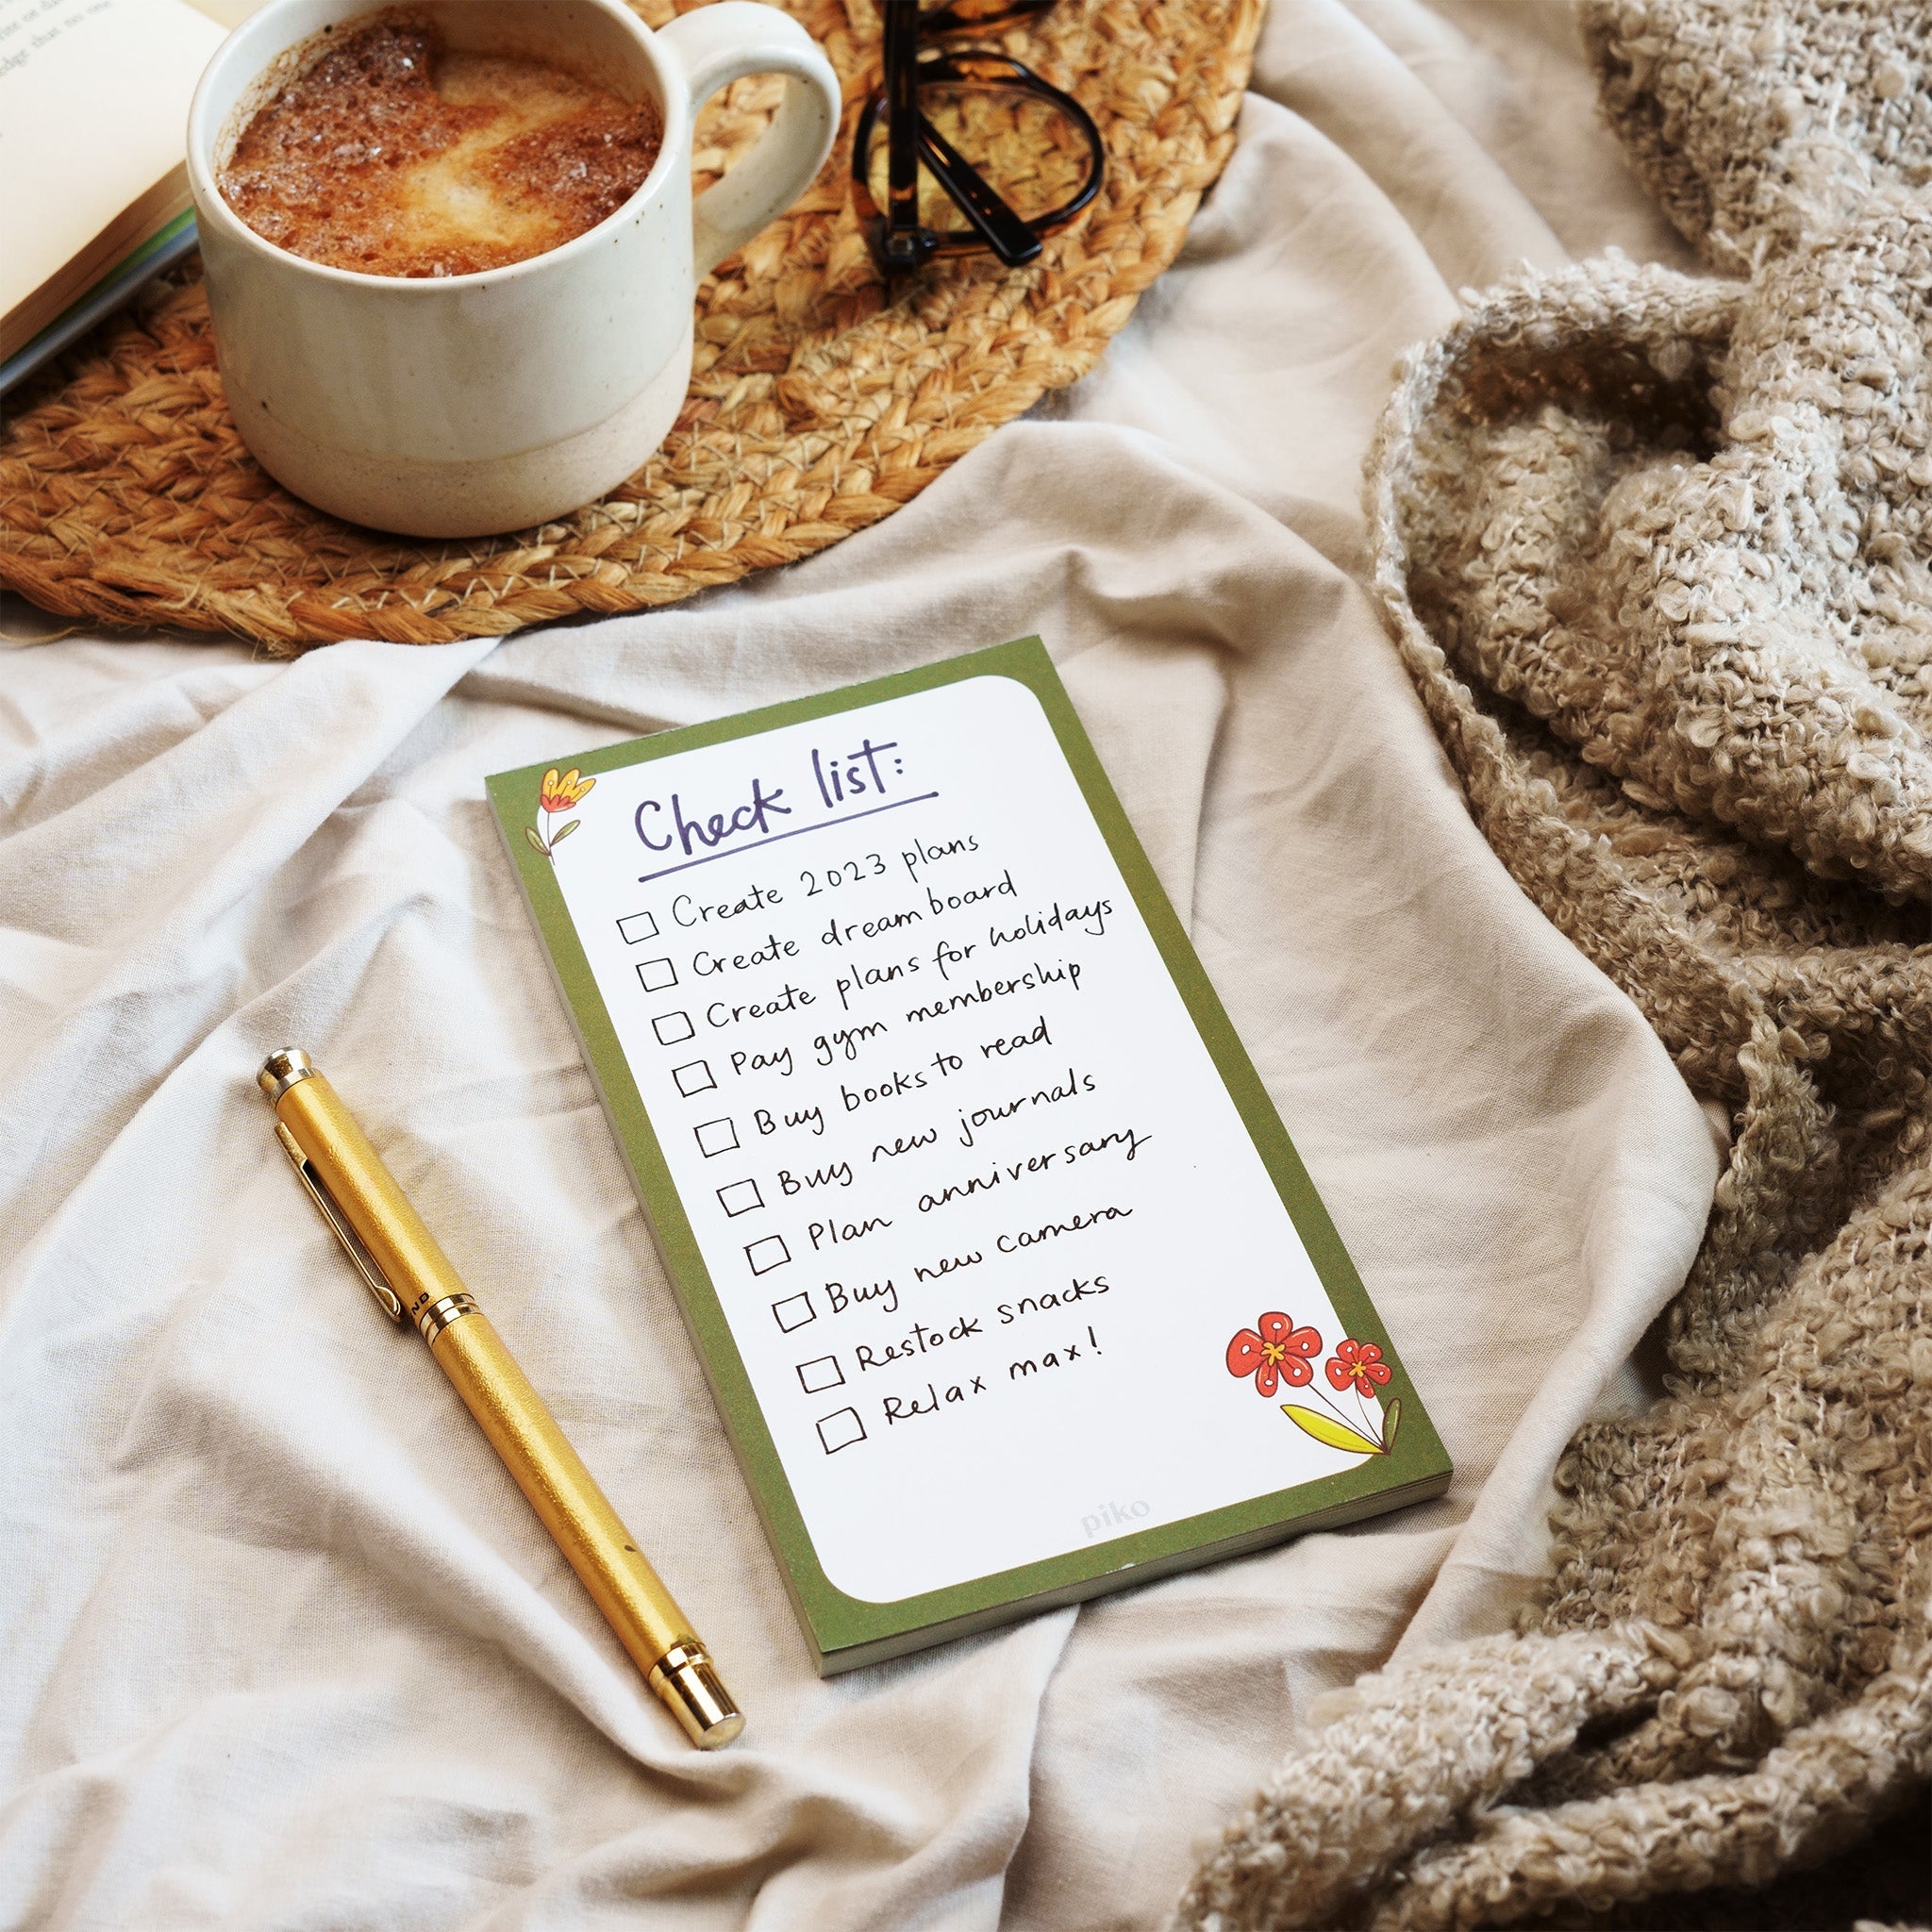 Check list:
Create 2023 plans
Create dream board
Create plans for holidays
Pay gym membership
Buy books to read
Buy new journals
Plan anniversary
Buy new camera
Restock snacks
Relax max!
piko